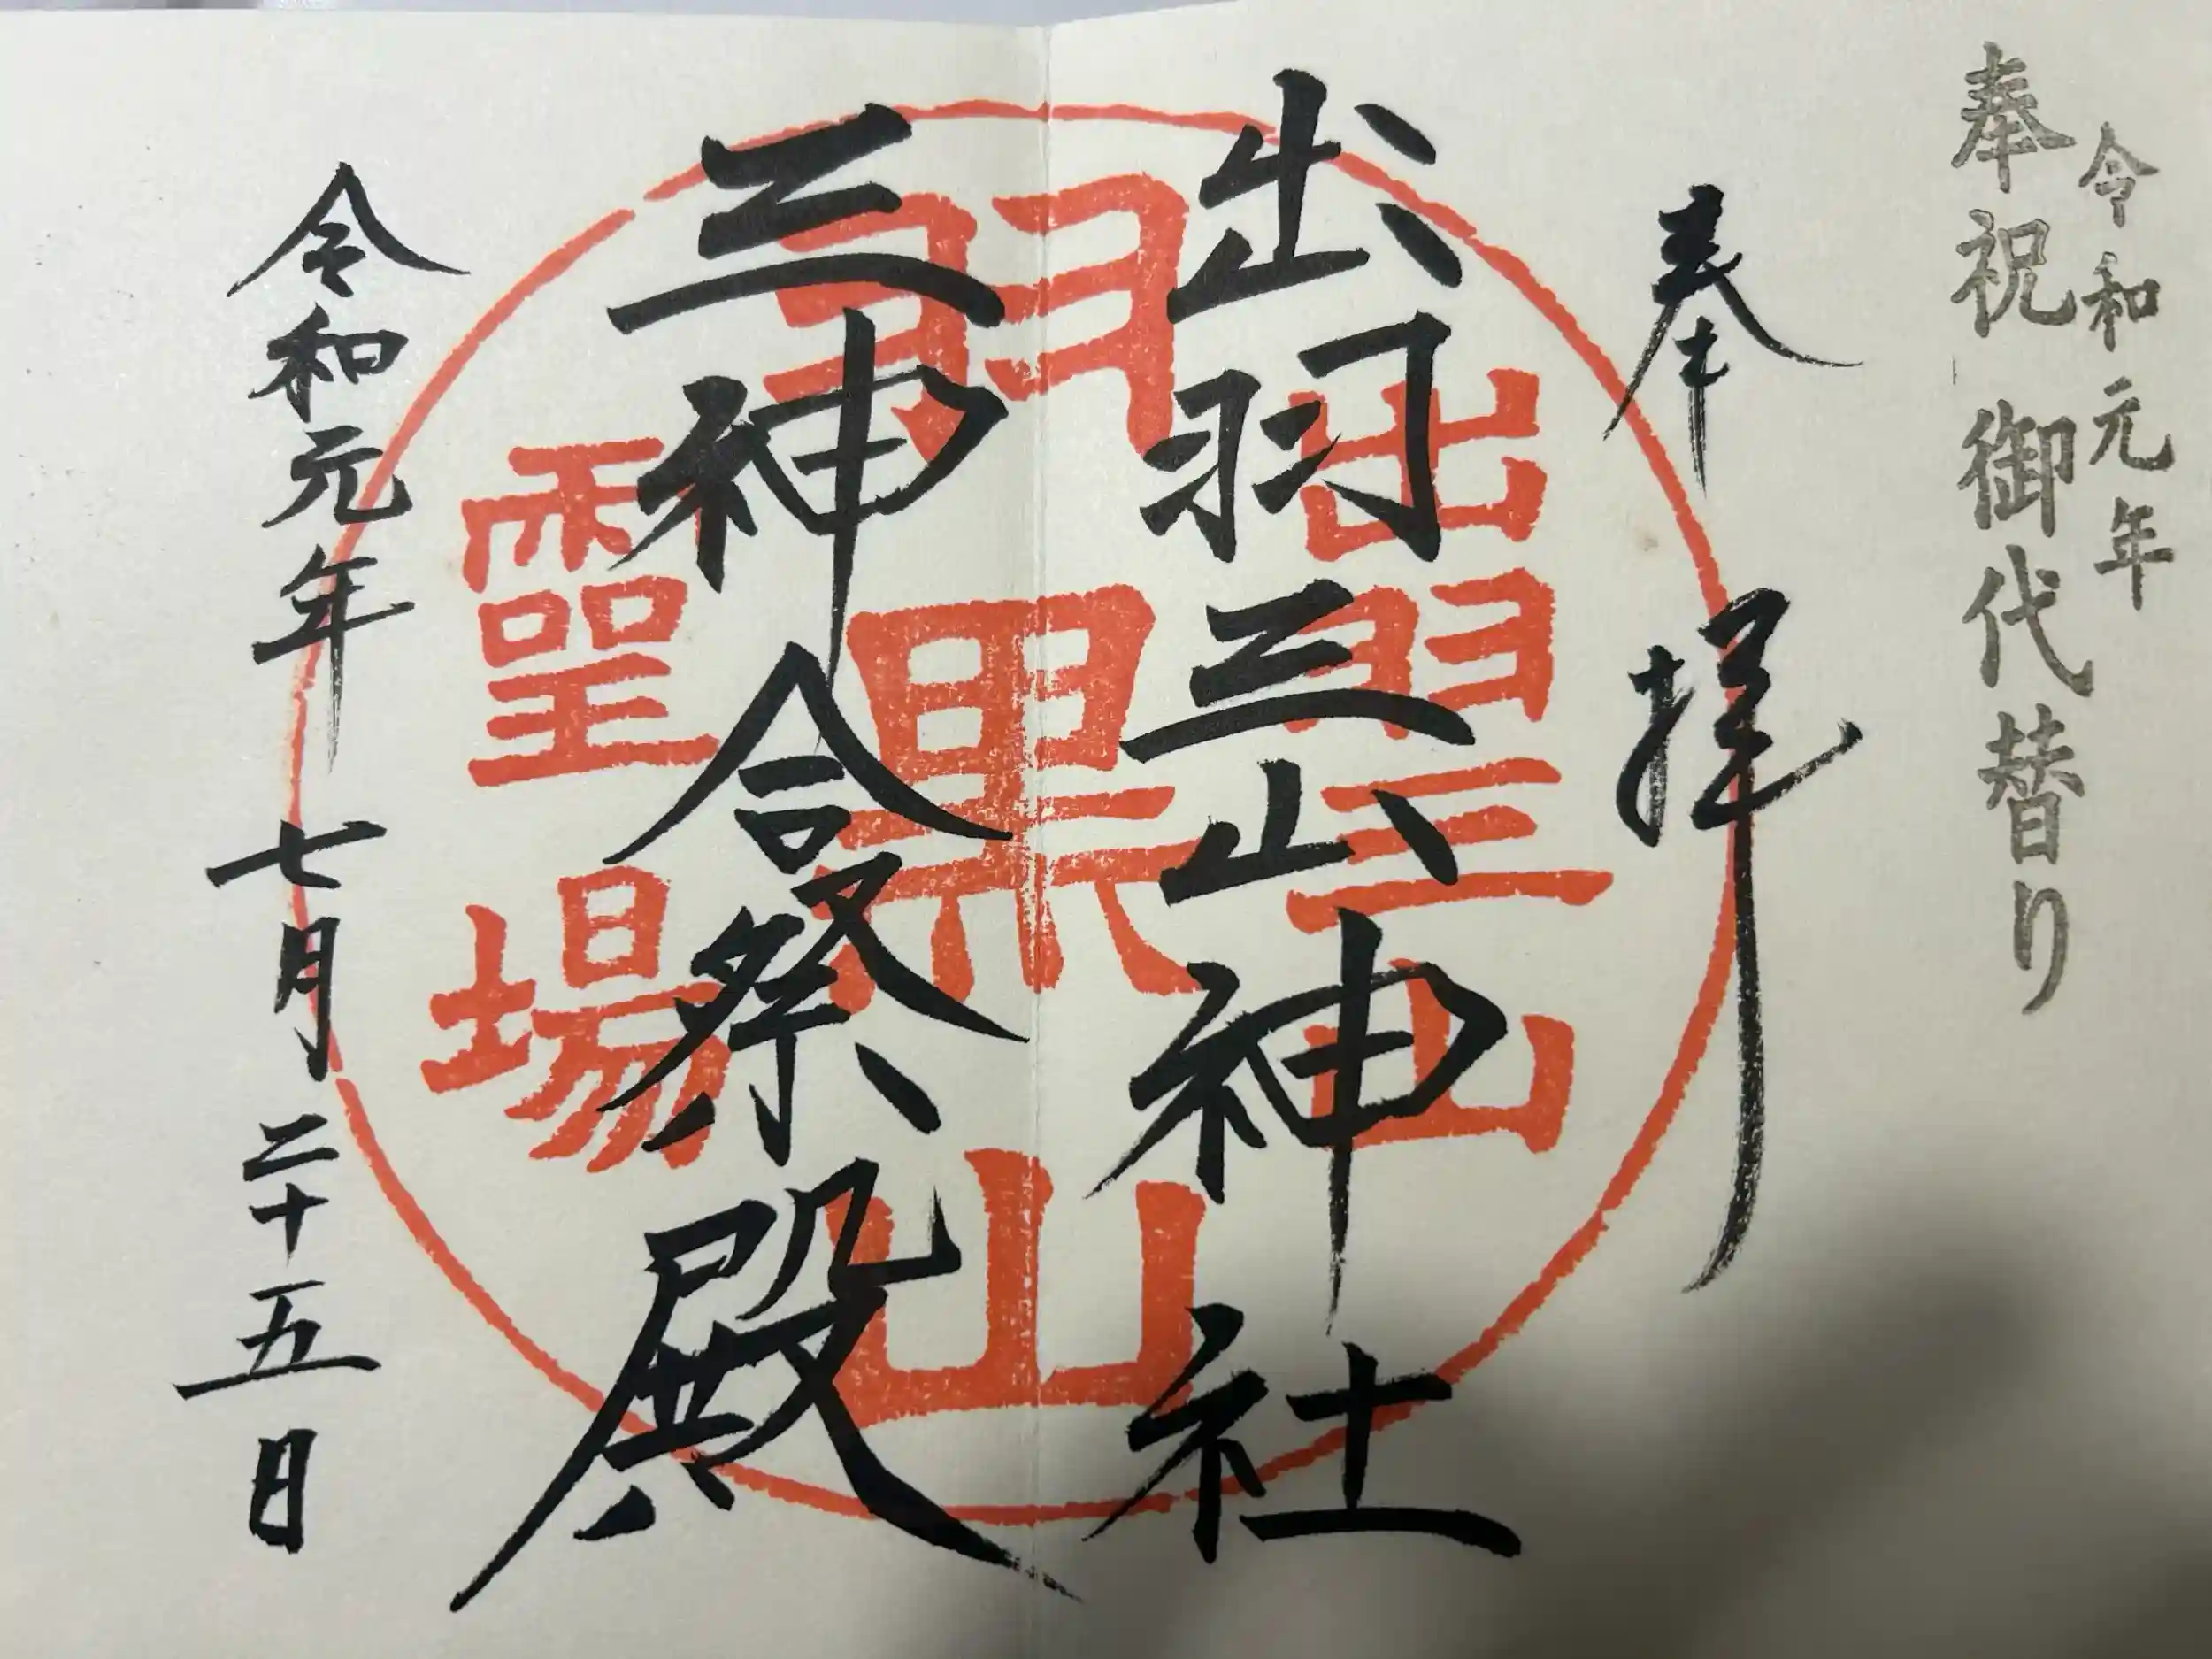 令和元年
奉祝 御代替り
奉拝
出羽三山神社
三神合祭殿
令和元年 七月 二十五日
出羽三山
羽黒山
霊場